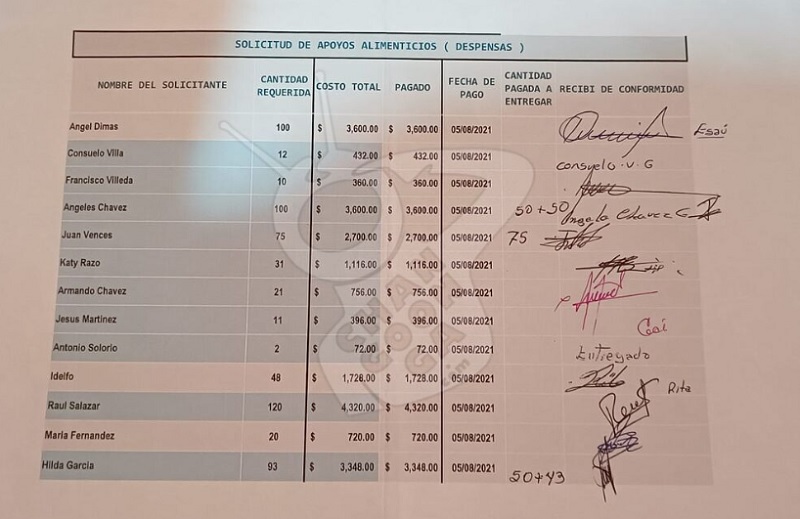 SOLICITUD DE APOYOS ALIMENTICIOS ( DESPENSAS )
NOMBRE DEL SOLICITANTE CANTIDAD REQUERIDA COSTO TOTAL PAGADO FECHA DE PAGO CANTIDAD PAGADA A ENTREGAR RECIBI DE CONFORMIDAD
Angel Dimas 100 $ 3,600.00 $ 3,600.00 05/08/2021 Esaú
Consuelo Villa 12 $ 432.00 $ 432.00 05/08/2021 Consuelo . V . G
Francisco Villeda 10 $ 360.00 $ 360.00 05/08/2021
Angeles Chavez 100 $ 3,600.00 $ 3,600.00 05/08/2021 50+50 Angele Chavez G
Juan Vences 75 $ 2,700.00 $ 2,700.00 05/08/2021 75
Katy Razo 31 $ 1,116.00 $ 1,116.00 05/08/2021
Armando Chavez 21 $ 756.00 $ 756.00 05/08/2021
Jesus Martinez 11 $ 396.00 $ 396.00 05/08/2021
Antonio Solorio 2 $ 72.00 $ 72.00 05/08/2021 Entregado
Idelfo 48 $ 1,728.00 $ 1,728.00 05/08/2021 Rita
Raul Salazar 120 $ 4,320.00 $ 4,320.00 05/08/2021
Maria Fernandez 20 $ 720.00 $ 720.00 05/08/2021
Hilda Garcia 93 $ 3,348.00 $ 3,348.00 05/08/2021 50+43